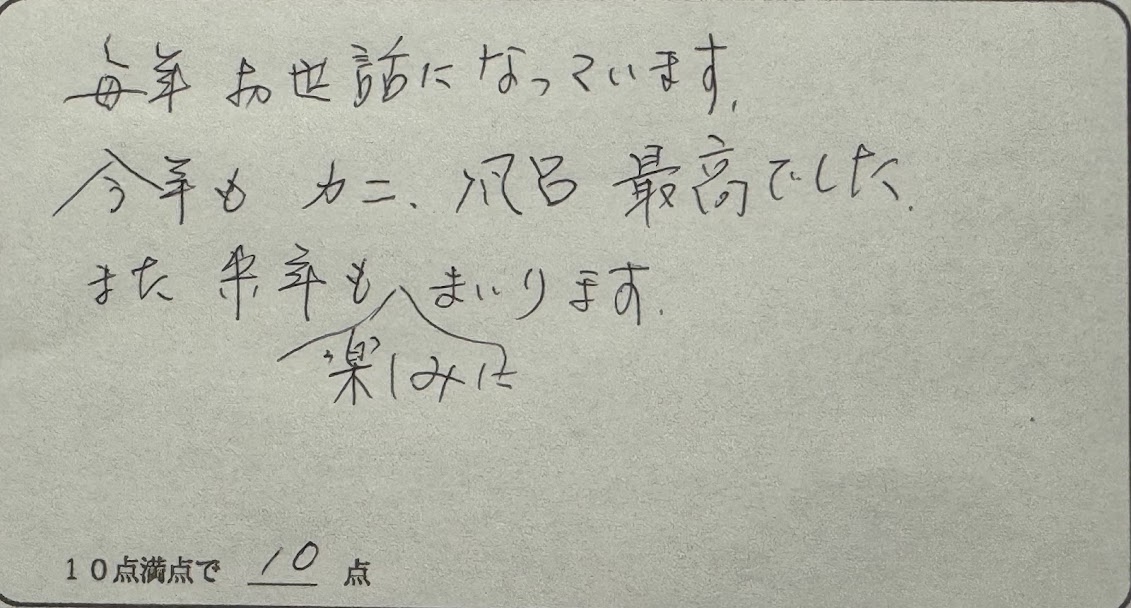 毎年お世話になっています.
今年も カニ、風呂 最高でした.
また 来年も楽しみにまいります.
10点満点で 10 点